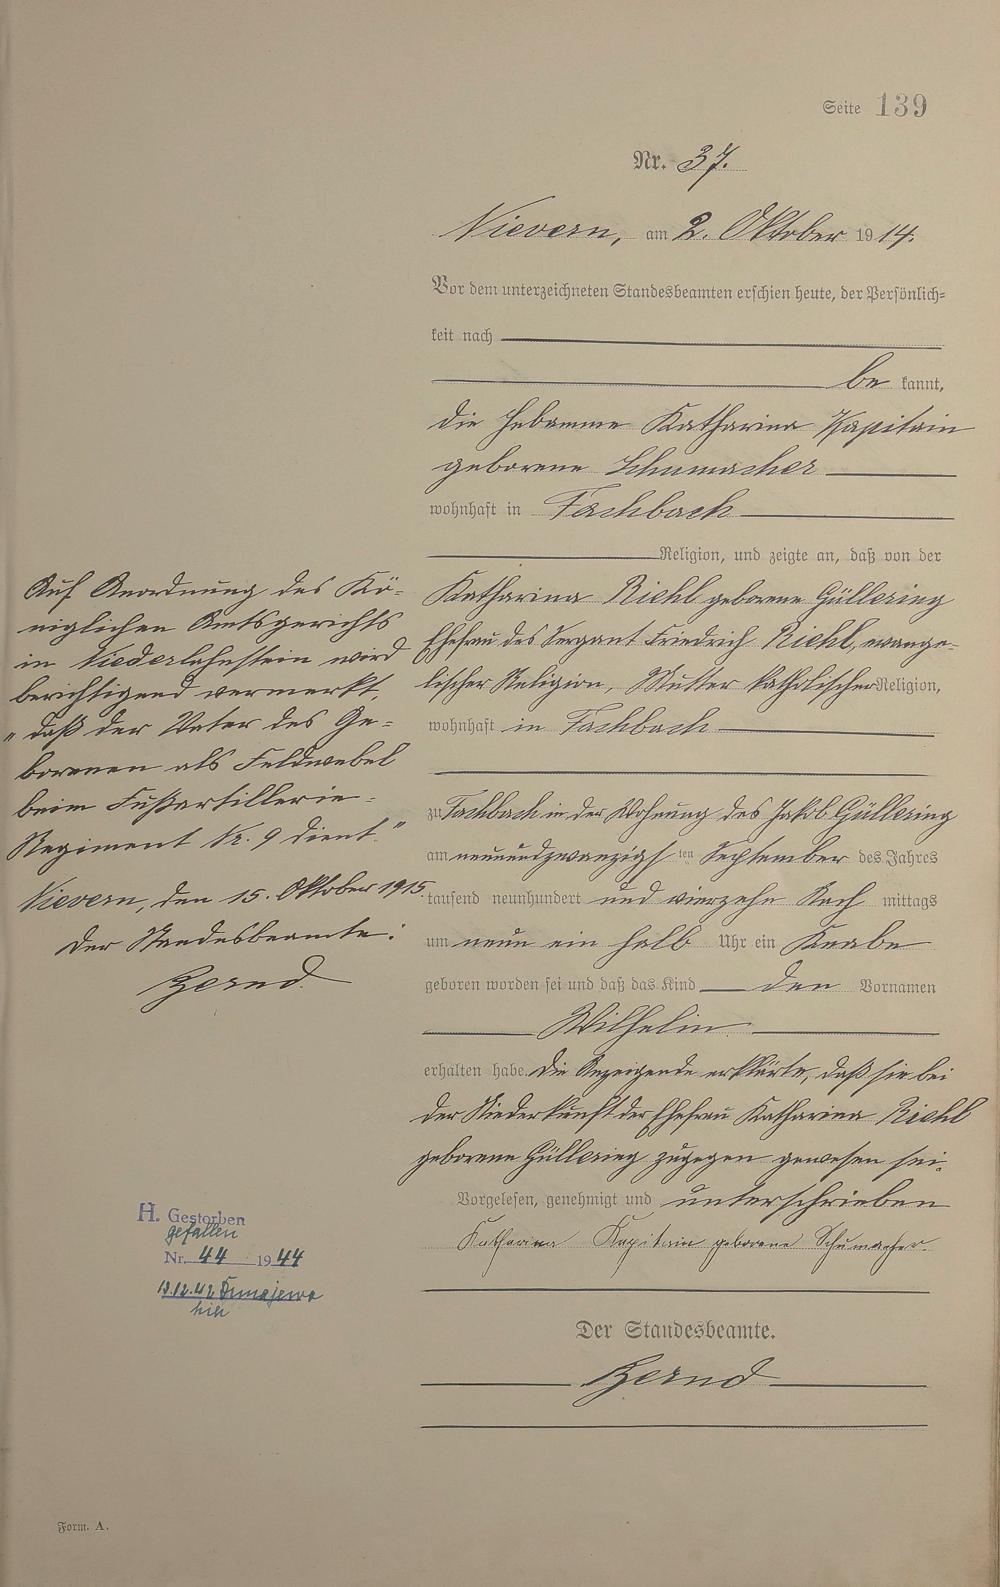 Seite 139
Nr. 37.
Nievern, am 2. Oktober 1914.
Vor dem unterzeichneten Standesbeamten erschien heute, der Persönlich=
keit nach
be kannt,
die Hebamme Katharina Kapitain
geborene Schumacher
wohnhaft in Fachbach
Religion, und zeigte an, daß von der
Katharina Riehl geborene Güllering
Ehefrau des Sergant Friedrich Riehl, evange-
lischer Religion, Mutter katholischer Religion,
wohnhaft in Fachbach
zu Fachbach in der Wohnung des Jakob Güllering
am neunundzwanzigsten September des Jahres
tausend neunhundert und vierzehn Nach mittags
um neun ein halb Uhr ein Knabe
geboren worden sei und daß das Kind den Vornamen
Wilhelm
erhalten habe. Die Anzeigende erklärte, daß sie bei
der Niederkunft der Ehefrau Katharina Riehl
geborene Güllering zugegen gewesen sei.
Vorgelesen, genehmigt und unterschrieben
Katharina Kapitain geborene Schumacher.
Der Standesbeamte.
Zernd
Auf Anordnung des Kö-
niglichen Amtsgerichts
in Niederlahnstein wird
berichtigend vermerkt,
"daß der Vater des Ge-
borenen als Feldwebel
beim Fußartillerie-
Regiment Nr. 9 dient."
Nievern, den 15. Oktober 1915.
Der Standesbeamte:
Zernd
H. Gestorben
gefallen
Nr. 44 1944
Form. A.